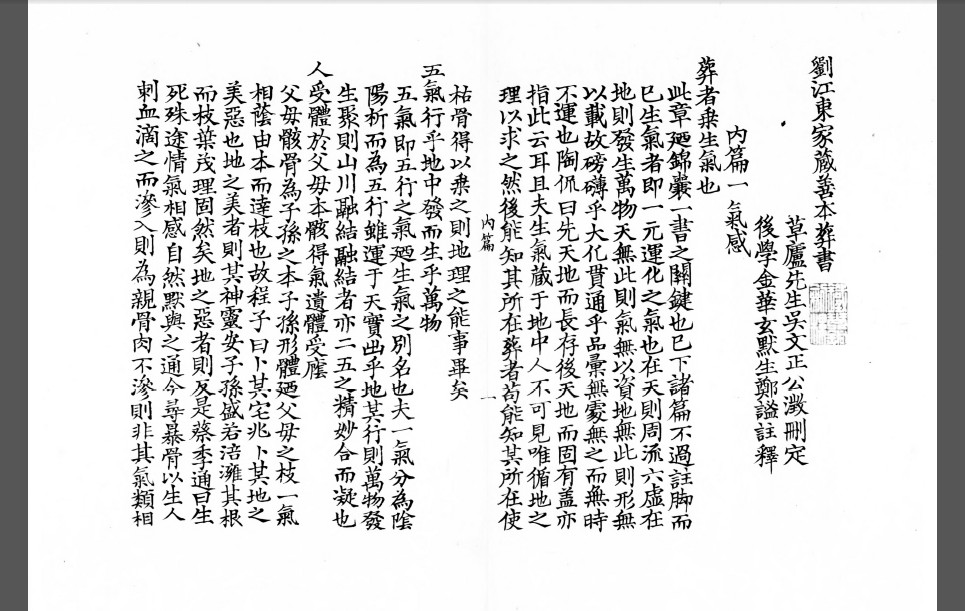 劉江東家藏善本葬書
草廬先生吳文正公澂刪定
後學金華玄默生鄭謐註釋
內篇一 氣感
葬者乗生氣也
此章廼錦囊一書之關鍵也已下諸篇不過註脚而
已生氣者即一元運化之氣也在天則周流六虛在
地則發生萬物天無此則氣無以資地無此則形無
以載故磅礴乎大化貫通乎品彙無處無之而無時
不運也陶侃曰先天地而長存後天地而固有蓋亦
指此云耳且夫生氣藏于地中人不可見唯循地之
理以求之然後能知其所在葬者苟能知其所在使
內篇 一
枯骨得以乗之則地理之能事畢矣
五氣行乎地中發而生乎萬物
五氣即五行之氣廼生氣之別名也夫一氣分為陰
陽析而為五行雖運于天實出乎地其行則萬物發
生聚則山川融結融結者亦二五之精妙合而凝也
人受體於父母本骸得氣遺體受廕
父母骸骨為子孫之本子孫形體廼父母之枝一氣
相蔭由本而達枝也故程子曰卜其宅兆卜其地之
美惡也地之美者則其神靈安子孫盛若涪灘其根
而枝葉茂理固然矣地之惡者則反是蔡季通曰生
死殊途情氣相感自然默與之通今尋暴骨以生人
刺血滴之而滲入則為親骨肉不滲則非其氣類相